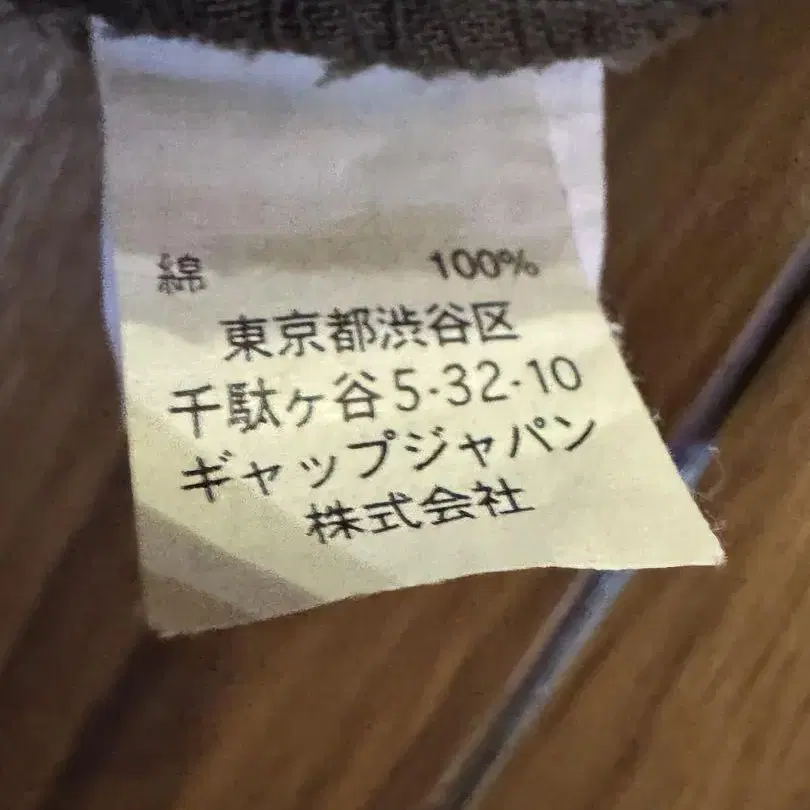 綿 100%
東京都渋谷区
千駄ヶ谷5-32-10
ギャップジャパン
株式会社